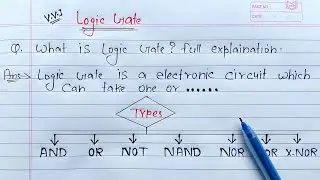 V.V.I Logic Gate
PAGE NO.
DATE
Q. What is Logic Gate? full explaination.
Ans→ Logic Gate is a electronic circuit which
can take one or ......
Types
AND OR NOT NAND NOR OR X-NOR